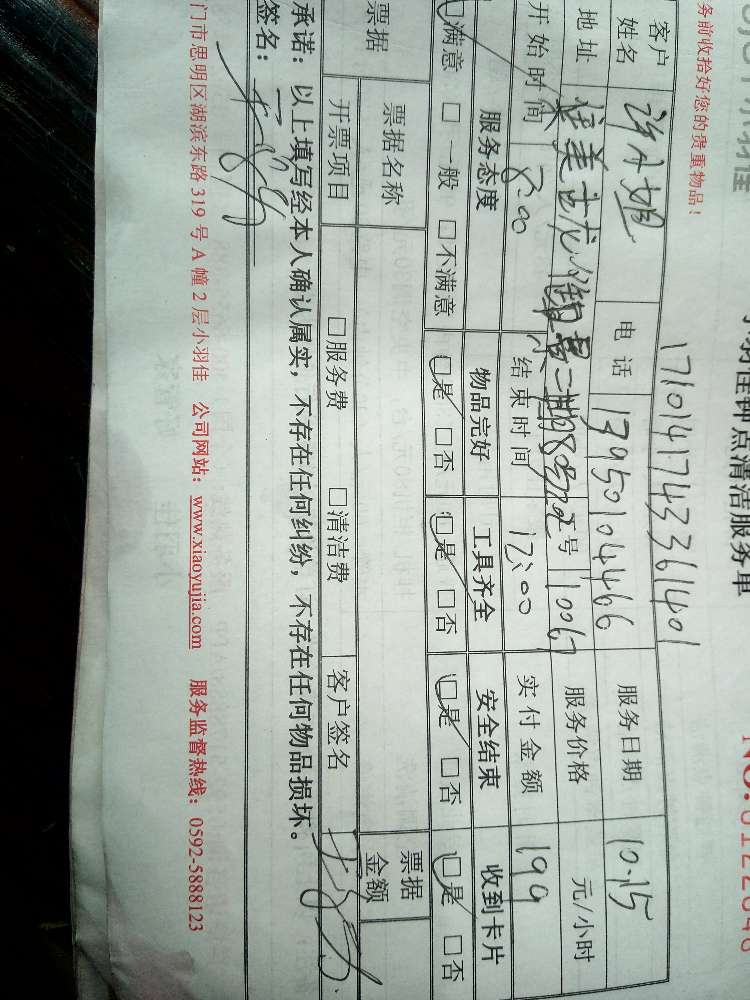 羽佳钟点清洁服务单
务前收拾好您的贵重物品！
1710141743361401
客户姓名 许小姐 电话 13950104466 服务日期 10.15
地址 号 10067 服务价格 元/小时
开始时间 8:00 结束时间 12:00 实付金额 199
服务态度 物品完好 工具齐全 安全结束 收到卡片
□满意 □一般 □不满意 □是 □否 □是 □否 □是 □否 □是 □否
票据 票据名称 票据金额
开票项目 □服务费 □清洁费 客户签名
承诺：以上填写经本人确认属实，不存在任何纠纷，不存在任何物品损坏。
签名：
门市思明区湖滨东路 319 号 A 幢 2 层小羽佳 公司网站：www.xiaoyujia.com 服务监督热线：0592-5888123